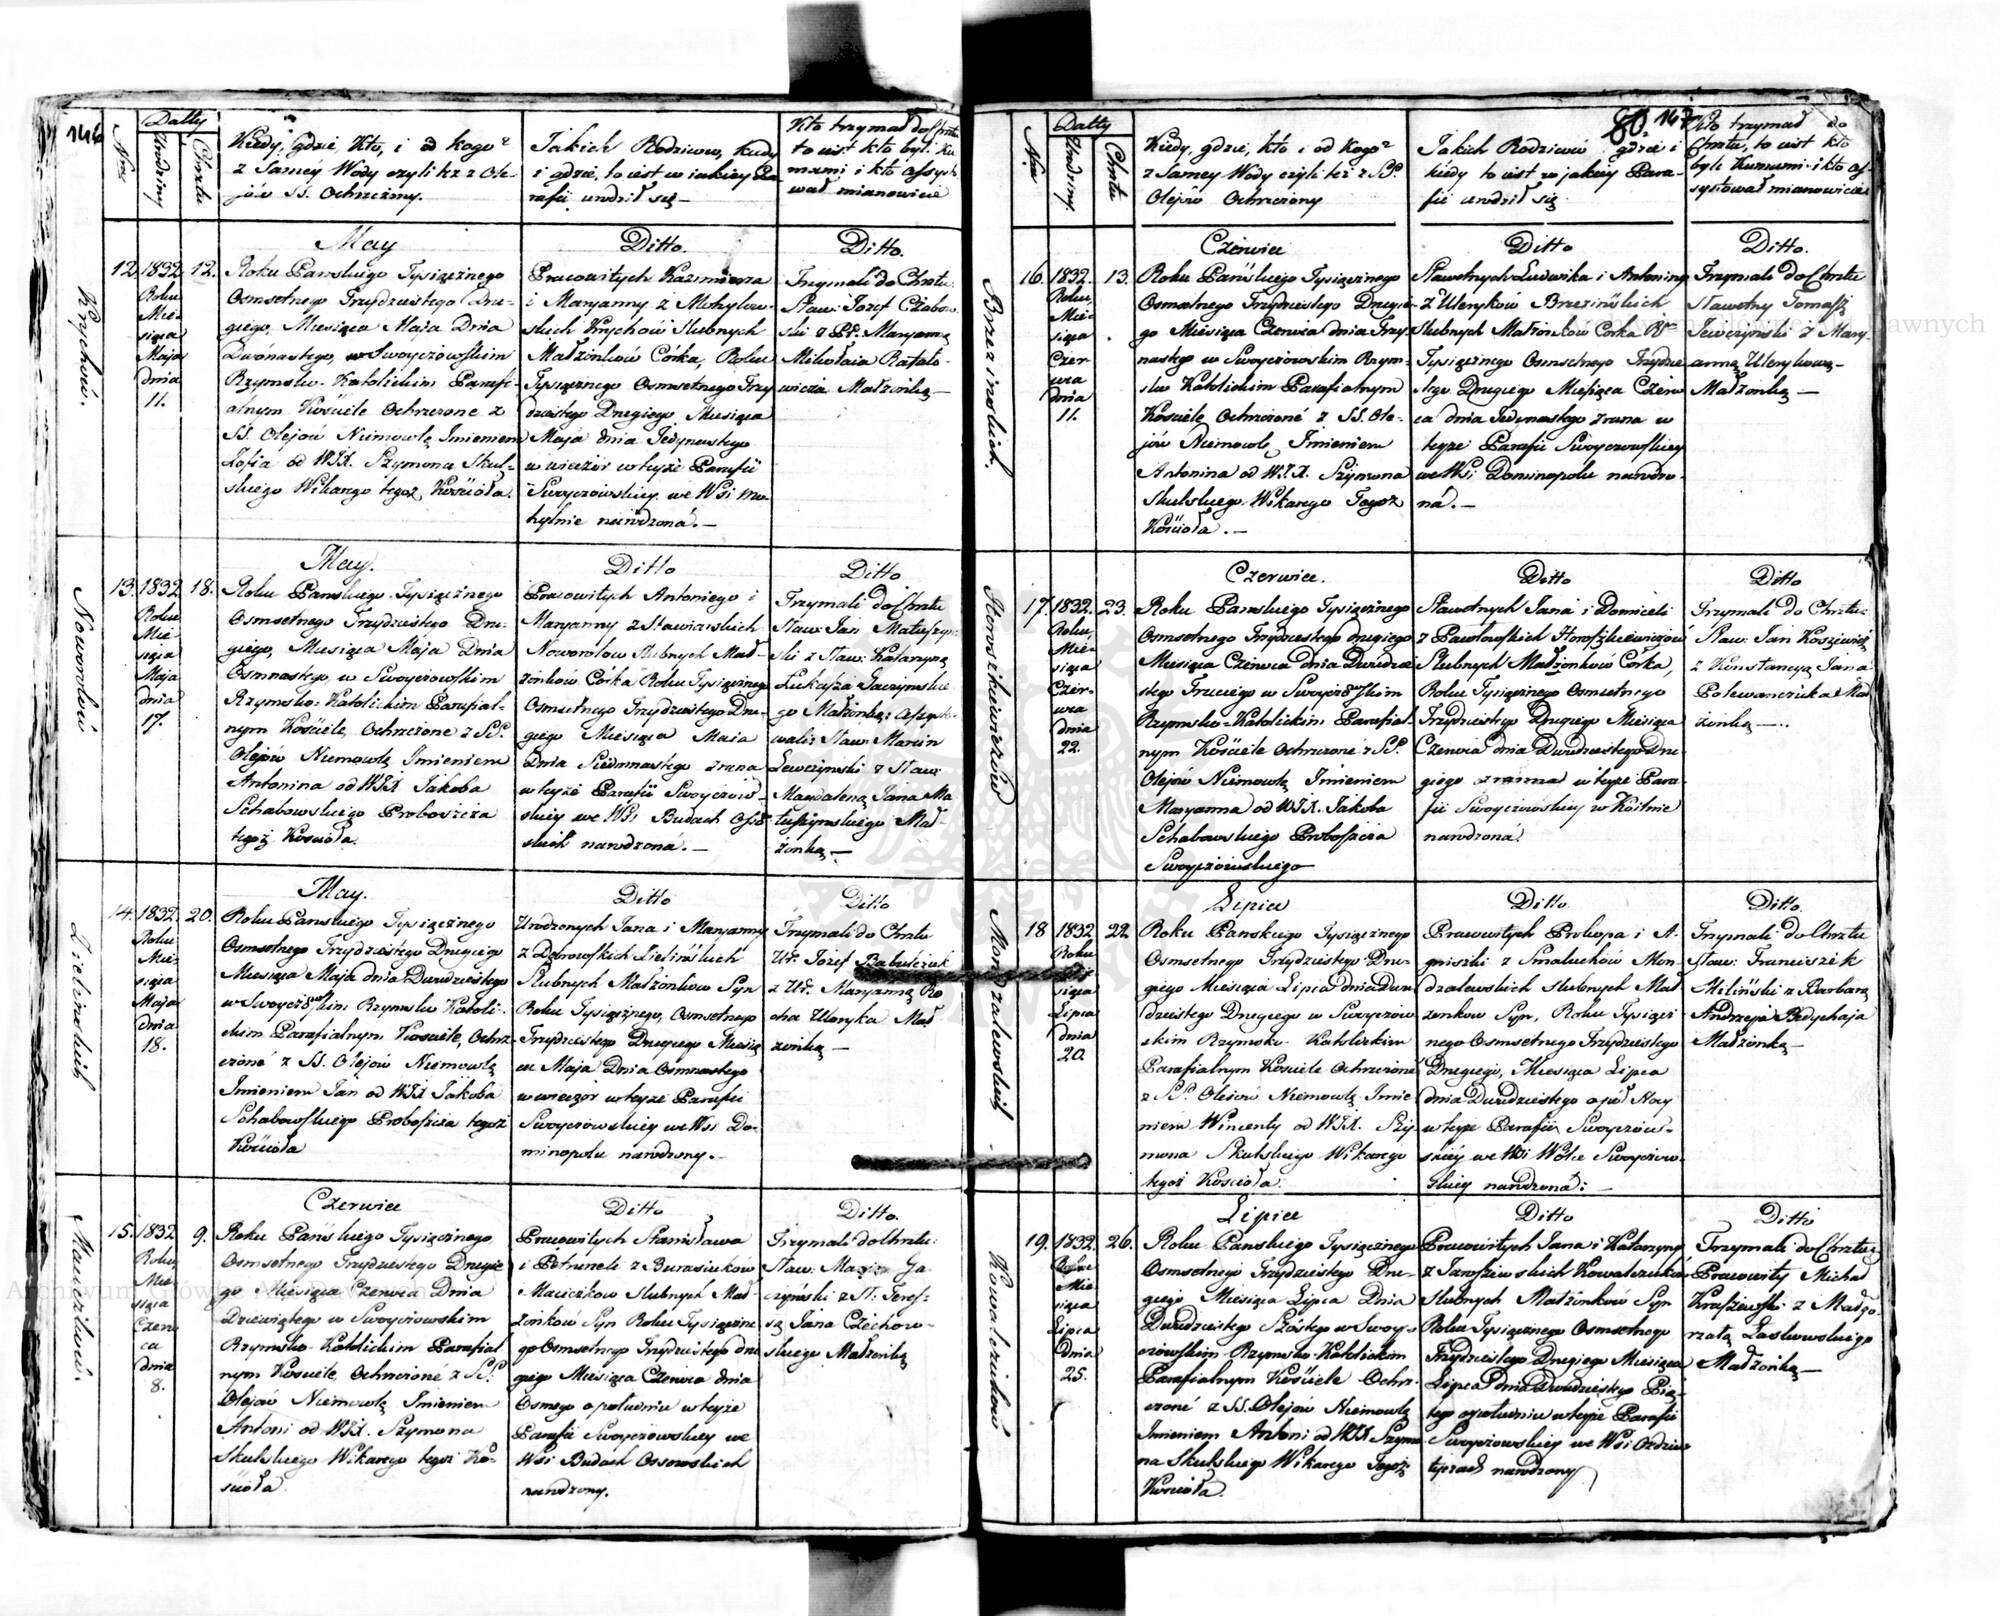 146
Nro
Datty
Urodziny
Chrztu
Kiedy, gdzie, Kto, i od kogo?
z Samey Wody czyli też z Ole-
jów SS. Ochrzczony.
Jakich Rodziców, kiedy
i gdzie, to iest w iakiey Pa-
rafii urodził się —
Kto trzymał do Chrztu
to iest kto byli Ku-
mami i kto assysto-
wał mianowicie
Krychów.
12.
1832
Roku
Mie-
siąca
Maja
dnia
11.
12.
May
Roku Pańskiego Tysiącznego
Osmsetnego Trzydziestego Dru-
giego, Miesiąca Maja Dnia
Dwónastego, w Swoyczowskim
Rzymsko-Katolickim Parafi-
alnym Kościele Ochrzczone z
SS. Olejów Niemowlę Imieniem
Zofia od WJX. Szymona Skul-
skiego Wikarego tegoż Kościoła.
Ditto.
Pracowitych Kazimierza
i Maryanny z Mohylow-
skich Krychów Slubnych
Małżonków Córka, Roku
Tysiącznego Osmsetnego Trzy
dziestego Drugiego Miesiąca
Maja dnia Jedynastego
w wieczór w teyże Parafii
Swoyczowskiey we Wsi Mo-
hylnie narodzoná. —
Ditto.
Trzymali do Chrztu
Staw: Jozef Czabow-
ski z Maryanną
Mikołaia Rafało-
wicza Małżonką —
Noworolów
13.
1832
Roku
Mie-
siąca
Maja
dnia
17.
18.
May.
Roku Pańskiego Tysiącznego
Osmsetnego Trzydziestego Dru-
giego, Miesiąca Maja Dnia
Osmnastego, w Swoyczowskim
Rzymsko-Katolickim Parafial-
nym Kościele, Ochrzczone z SS.
Olejów Niemowlę Imieniem
Antonina od WJX Jakoba
Schabowskiego Proboszcza
tegoż Kościoła.
Ditto
Pracowitych Antoniego i
Maryanny z Sławiarskich
Noworolów Slubnych Mał-
żonków Córka Roku Tysiącznego
Osmsetnego Trzydziestego Dru-
giego Miesiąca Maia
Dnia Siedmnastego zrana
w teyże Parafii Swoyczow-
skiey we Wsi Budach Osso-
skich narodzoná. —
Ditto
Trzymali do Chrztu
Staw: Jan Matuszyń-
ski z Staw: Katarzyną
Łukasza Jaczynskie
go Małżonką: Assysto-
wali: Staw: Marcin
Lewczyński z Staw:
Magdaleną Jana Ma
tuszyńskiego Mał
żonką —
Zielinskich
14.
1832
Roku
Mie-
siąca
Maja
dnia
18.
20.
May.
Roku Pańskiego Tysiącznego
Osmsetnego Trzydziestego Drugiego
Miesiąca Maja dnia Dwudziestego
w Swoyczowskim Rzymsko Katoli-
ckim Parafialnym Kościele Ochrz-
czoné z SS. Olejów Niemowlę
Imieniem Jan od WJX Jakoba
Schabowskiego Proboszcza tegoż
Kościoła
Ditto
Urodzonych Jana i Maryanny
z Dąbrowskich Zielińskich
Slubnych Małżonków Syn
Roku Tysiącznego, Osmsetnego
Trzydziestego Drugiego Miesią
ca Maja Dnia Osmnastego
w wieczór w teyże Parafii
Swoyczowskiey we Wsi Do-
minopolu narodzony. —
Ditto
Trzymali do Chrztu
Ur. Jozef Babulczuk
z Ur. Maryanną
Uleryka Mał-
żonką —
Macieszków.
15.
1832
Roku
Mie-
siąca
Czerw
ca
dnia
8.
9.
Czerwiec
Roku Pańskiego Tysiącznego
Osmsetnego Trzydziestego Drugie
go Miesiąca Czerwca Dnia
Dziewiątego w Swoyczowskim
Rzymsko-Katolickim Parafial
nym Kościele, Ochrzczoné z SS.
Olejów Niemowlę Imieniem
Antoni od WJX. Szymona
Skulskiego Wikarego tegoż Ko-
ścioła.
Ditto
Pracowitych Stanisława
i Petruneli z Burasiukow
Macieszkow Slubnych Mał-
żonków Syn Roku Tysiączne
go Osmsetnego Trzydziestego Dru
giego Miesiąca Czerwca dnia
Osmego o południu w teyże
Parafii Swoyczowskiey we
Wsi Budach Ossowskich
narodzony.
Ditto.
Trzymali do Chrztu:
Staw: Ga-
czyński z St. Teres-
są Jana Czechow-
skiego Małżonką
147
Nro
Datty
Urodziny.
Chrztu
Kiedy, gdzie, kto i od Kogo?
z Samey Wody czyli też z SS.
Olejów Ochrzczony
Jakich Rodziców gdzie i
kiedy to iest w jakiey Para-
fii urodził się
Kto trzymał do
Chrztu, to iest kto
byli Kumami i kto as-
systował mianowicie
Brzezinskich.
16.
1832
Roku,
Mie-
siąca
Czer-
wca
dnia
11.
13.
Czerwiec
Roku Pańskiego Tysiącznego
Osmsetnego Trzydziestego Drugie-
go Miesiąca Czerwca dnia Trzy-
nastego w Swoyczowskim Rzym-
sko Katolickim Parafialnym
Kościele Ochrzczoné z SS. Ole-
jów Niemowlę, Imieniem
Antonina od WJX. Szymona
Skulskiego Wikarego Tegoż
Kościoła. —
Ditto
Sławetnych Ludwika i Antoniny
z Uleryków Brzezińskich
Slubnych Małżonków Córka R
Tysiącznego Osmsetnego Trzydzie-
stego Drugiego Miesiąca Czerw
ca dnia Jedynastego zrana w
teyże Parafii Swoyczowskiey
we Wsi Dominopolu narodzo-
ná. —
Ditto.
Trzymali do Chrztu
Sławetny Tomasz
Jewczynski z Mary-
anną Ulerykową —
Małżonką —
Horoszkiewiczów
17.
1832.
Roku,
Mie-
siąca
Czer-
wca
dnia
22.
23.
Czerwiec.
Roku Pańskiego Tysiącznego
Osmsetnego Trzydziestego drugiego
Miesiąca Czerwca dnia Dwudzie
stego Trzeciego w Swoyczowskim
Rzymsko-Katolickim Parafial
nym Kościele Ochrzczoné z SS.
Olejów Niemowlę Imieniem
Maryanna od WJX. Jakoba
Schabowskiego Proboszcza
Swoyczowskiego
Ditto
Sławetnych Jana i Domiceli
z Pawłowskich Horoszkiewiczów
Slubnych Małżonków Córka,
Roku Tysiącznego Osmsetnego
Trzydziestego Drugiego Miesiąca
Czerwca dnia Dwudziestego Dru
giego zranna w teyże Para-
fii Swoyczowskiey w Kóltnie
narodzoná.
Ditto
Trzymali do Chrztu:
Staw: Jan Kościewicz
z Konstancyą Jana
Polewanczuka Mał
żonką —.
Mondzalewskich
18
1832
Roku
Mie-
siąca
Lipca
dnia
20.
22
Lipiec
Roku Pańskiego Tysiącznego
Osmsetnego Trzydziestego Dru-
giego Miesiąca Lipca dnia Dwu
dziestego Drugiego w Swoyczow
skim Rzymsko-Katolickim
Parafialnym Kościele Ochrzczoné
z SS. Olejów Niemowlę Imie
niem Wincenty od WJX. Szy-
mona Skulskiego Wikarego
tegoż Kościoła.
Ditto.
Pracowitych Prokopa i A-
gniszki z Smaluchów Mon-
dzalewskich slubnych Mał
żonkow Syn, Roku Tysiącz-
nego Osmsetnego Trzydziestego
Drugiego, Miesiąca Lipca
dnia Dwudziestego o pół Nocy
w teyże Parafii Swoyczow-
skiéy we Wsi Wólce Swoyczow-
skiey narodzoná: —
Ditto.
Trzymali do Chrztu
Staw: Franciszek
Miliński z Barbarą
Andrzeja Bedychaja
Małżonką —
Kowalczuków
19.
1832.
Mie-
siąca
Lipca
Dnia
25.
26.
Lipiec
Roku Pańskiego Tysiącznego
Osmsetnego Trzydziestego Dru-
giego Miesiąca Lipca Dnia
Dwudziestego Szóstego w Swoy-
czowskim Rzymsko-Katolickim
Parafialnym Kościele Ochrz-
czoné z SS. Olejów Niemowlę
Imieniem Antoni od WJX Szymo
na Skulskiego Wikarego Tegoż
Kościoła.
Ditto
Pracowitych Jana i Katarzyny
z Jaroszewskich Kowalczuków
Slubnych Małżonków Syn
Roku Tysiącznego Osmsetnego
Trzydziestego Drugiego Miesiąca
Lipca dnia Dwudziestego Pią-
tego o południu w teyże Parafii
Swoyczowskiey we Wsi
narodzony
Ditto
Trzymali do Chrztu:
Pracowity Michał
Kraszewski z Małgo-
rzatą Laskowskiego
Małżonką —
Archiwum Główne Akt Dawnych
Archiwum Główne Akt Dawnych